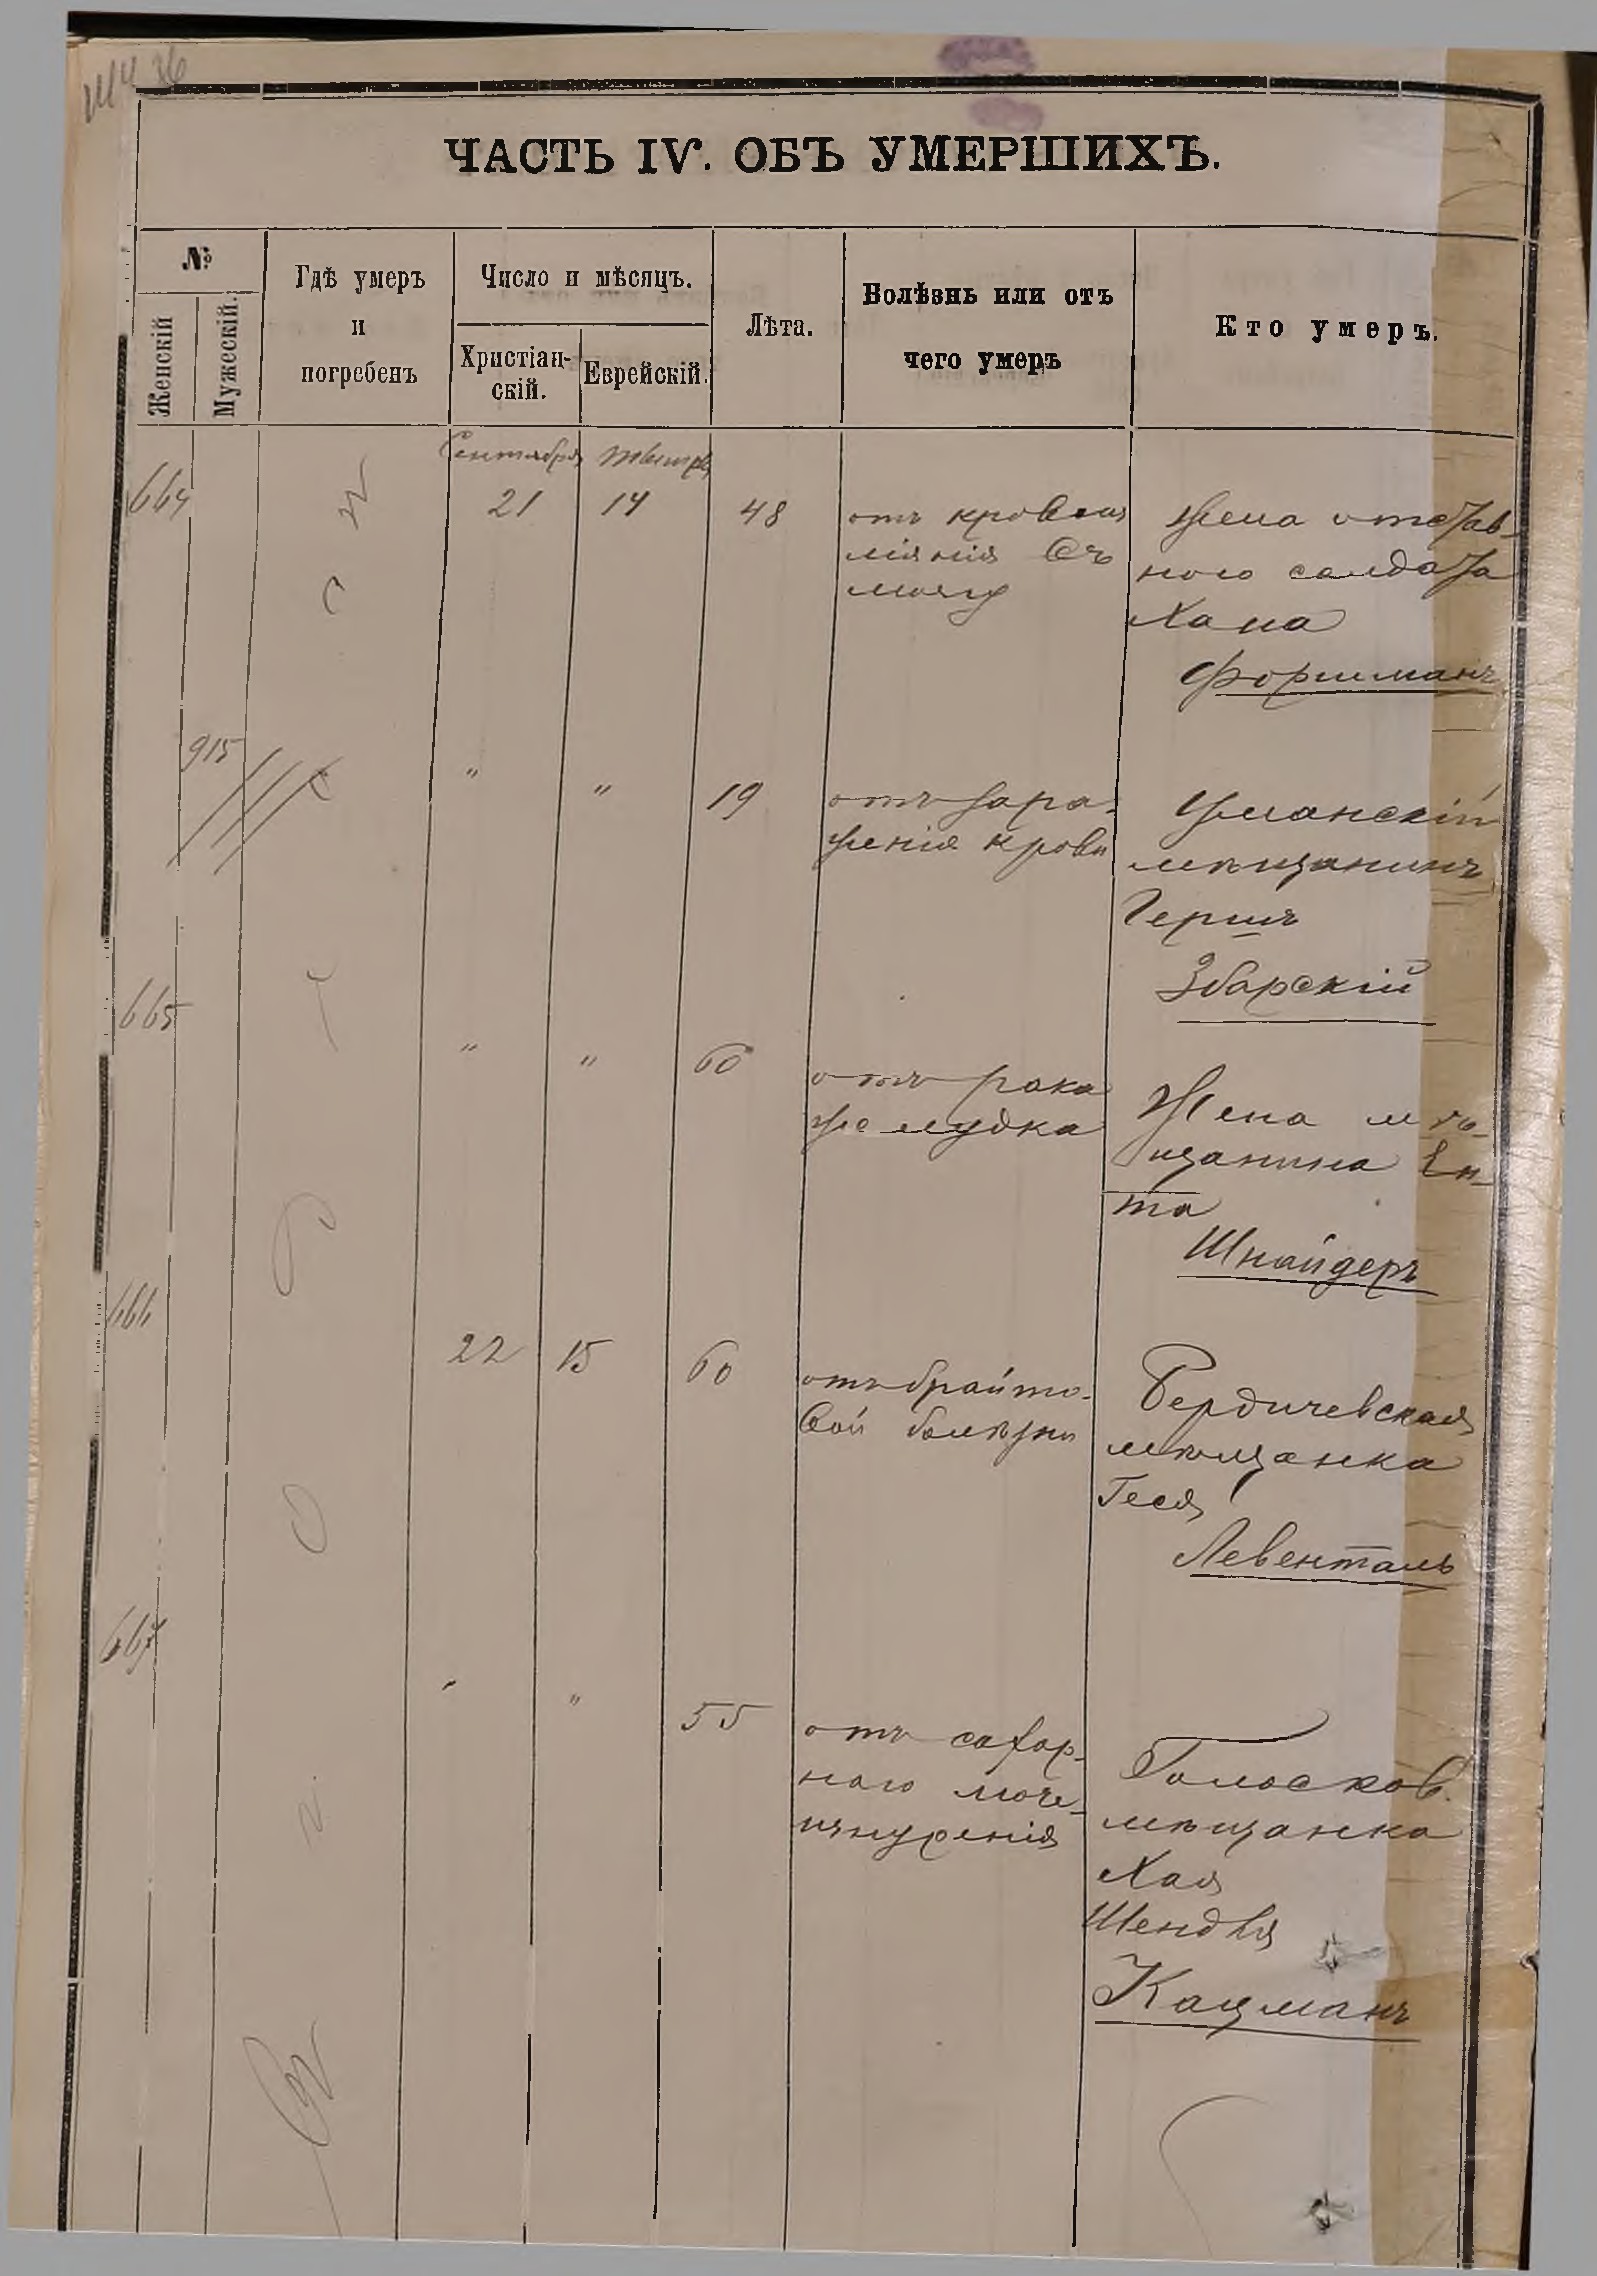 ЧАСТЬ IV. ОБЪ УМЕРШИХЪ.
№
Женскій
Мужескій.
Гдѣ умеръ
и
погребенъ
Число и мѣсяцъ.
Христіан-
скій.
Еврейскій.
Лѣта.
Болѣзнь или отъ
чего умеръ
Кто умеръ.
Сентября
664
21
14
48
отъ кровоиз
ліянія въ
мозгъ
Жена отстав-
ного солдата
Хана
Форшманъ
915
"
"
19
отъ зара-
женія крови
Уманскій
мѣщанинъ
Гершъ
Збарскій
665
"
"
60
отъ рака
желудка
Жена мѣ-
щанина Ен-
та
Шнайдеръ
666
22
15
60
отъ брайто-
вой болѣзни
Бердичевская
мѣщанка
Геся
Левенталь
667
"
"
55
отъ сахар-
наго моче-
изнуренія
Голосков.
мѣщанка
Хая
Шендля
Кацманъ